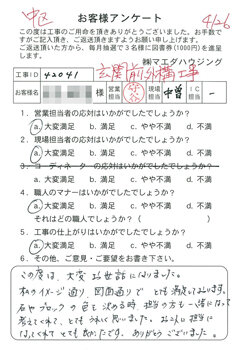 中区
4/26
お客様アンケート
この度は工事のご用命を頂きありがとうございました。お手数で
すがご記入頂き、ご返送頂きますようお願い申し上げます。
ご返送頂いた方から、毎月抽選で3名様に図書券(1000円)を進呈
します。
㈱マエダハウジング
玄関前外構工事
工事ID 42041
お客様名 様 営業担当 現場担当 中曽 IC担当 ー
1. 営業担当者の応対はいかがでしたでしょうか?
a. 大変満足 b. 満足 c. やや不満 d. 不満
2. 現場担当者の応対はいかがでしたでしょうか?
a. 大変満足 b. 満足 c. やや不満 d. 不満
3. コーディネーターの応対はいかがでしたでしょうか?
a. 大変満足 b. 満足 c. やや不満 d. 不満
4. 職人のマナーはいかがでしたでしょうか?
a. 大変満足 b. 満足 c. やや不満 d. 不満
それはどの職人でしょうか( )
5. 工事の仕上がりはいかがでしたでしょうか?
a. 大変満足 b. 満足 c. やや不満 d. 不満
6. その他、ご意見・ご要望をお書き下さい。
この度は、大変お世話になりました。
私のイメージ通り、図面通りで とても満足しております。
石やブロックの色を決める時 担当の方も一緒になって
考えてくれて、とてもうれしく思いました。
なってくれて とても良かったです。ありがとうございました。